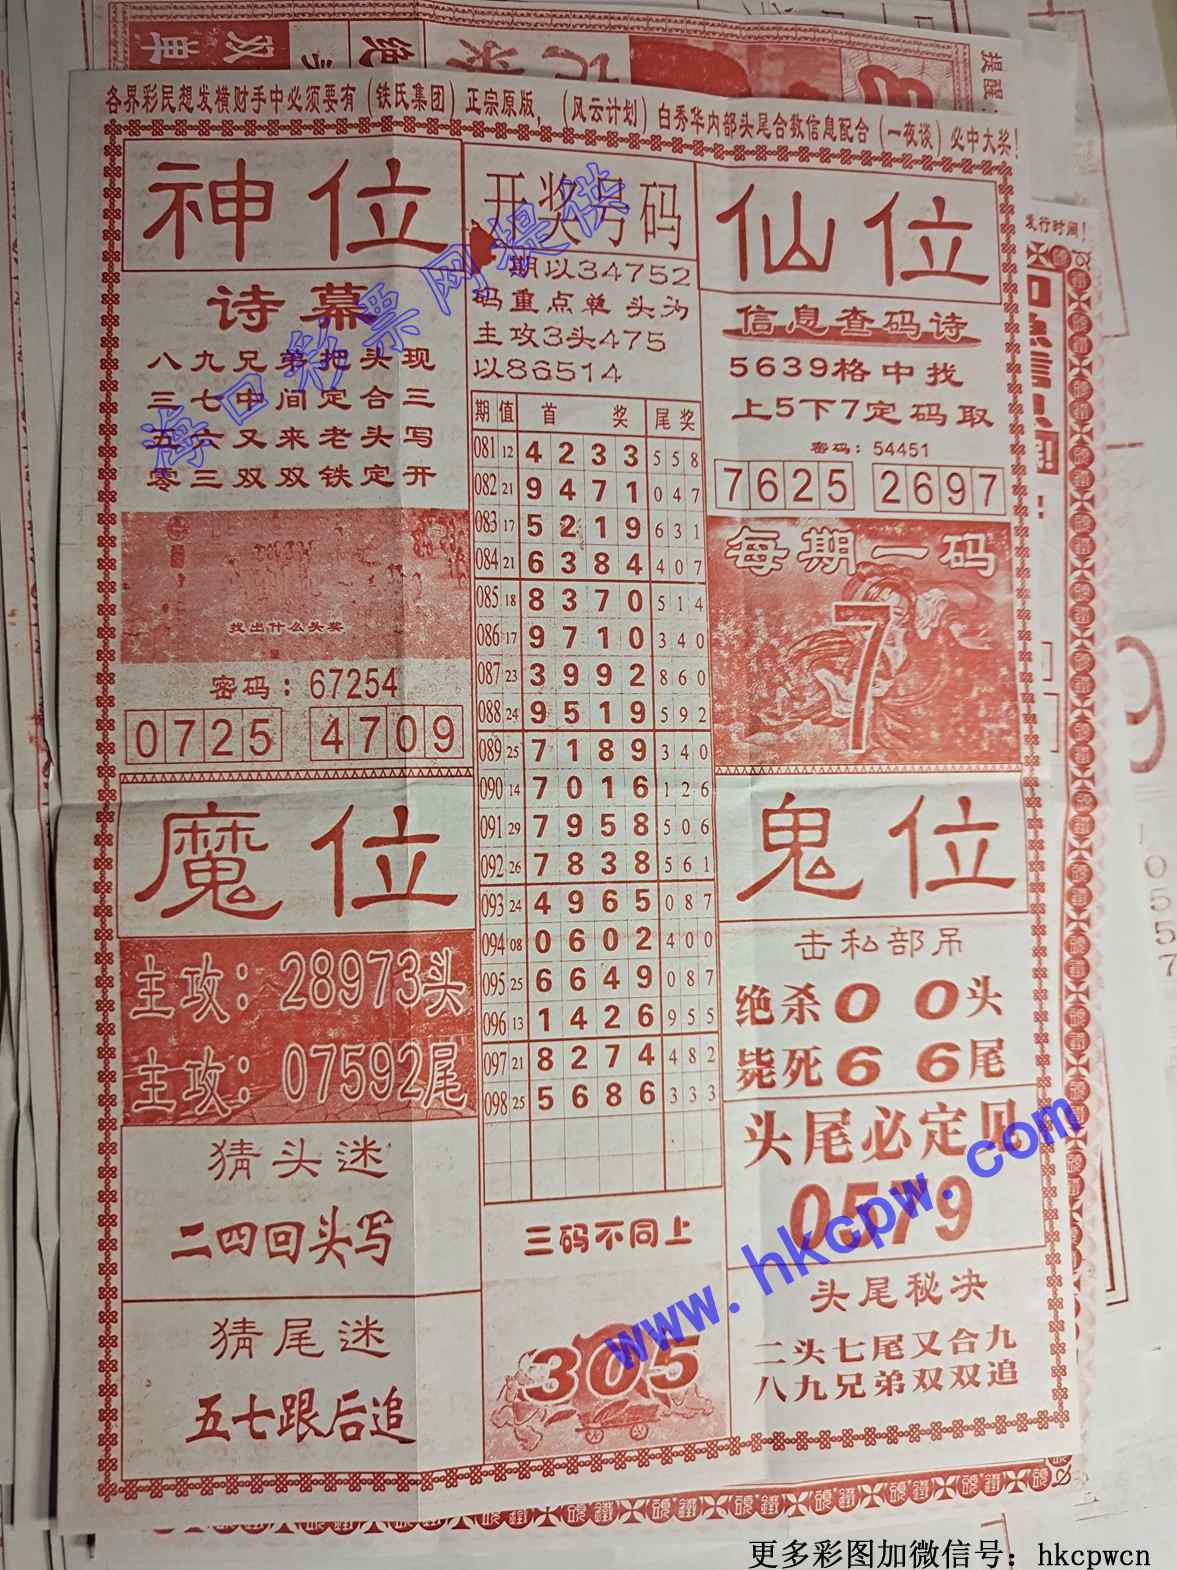 各界彩民想发横财手中必须要有（铁氏集团）正宗原版，（风云计划）白秀华内部头尾合数信息配合（一夜谈）必中大奖！
神位
诗幕
八九兄弟把头现
三七中间定合三
五六又来老头写
零三双双铁定开
找出什么头奖
密码：67254
0725 4709
开奖号码
期以34752
码重点单 头为
主攻3头475
以86514
期 值 首 奖 尾奖
081 12 4 2 3 3 5 5 8
082 21 9 4 7 1 0 4 7
083 17 5 2 1 9 6 3 1
084 21 6 3 8 4 4 0 7
085 18 8 3 7 0 5 1 4
086 17 9 7 1 0 3 4 0
087 23 3 9 9 2 8 6 0
088 24 9 5 1 9 5 9 2
089 25 7 1 8 9 3 4 0
090 14 7 0 1 6 1 2 6
091 29 7 9 5 8 5 0 6
092 26 7 8 3 8 5 6 1
093 24 4 9 6 5 0 8 7
094 08 0 6 0 2 4 0 0
095 25 6 6 4 9 0 8 7
096 13 1 4 2 6 9 5 5
097 21 8 2 7 4 4 8 2
098 25 5 6 8 6 3 3 3
三码不同上
305
仙位
信息查码诗
5639格中找
上5下7定码取
密码：54451
7625 2697
每期一码
7
魔位
主攻：28973头
主攻：07592尾
猜头迷
二四回头写
猜尾迷
五七跟后追
鬼位
击私部吊
绝杀0 0头
毙死6 6尾
头尾必定见
0579
头尾秘决
二头七尾又合九
八九兄弟双双追
海口彩票网提供
www.hkcpw.com
发行时间！
提醒
双单
9
0557
更多彩图加微信号：hkcpwcn